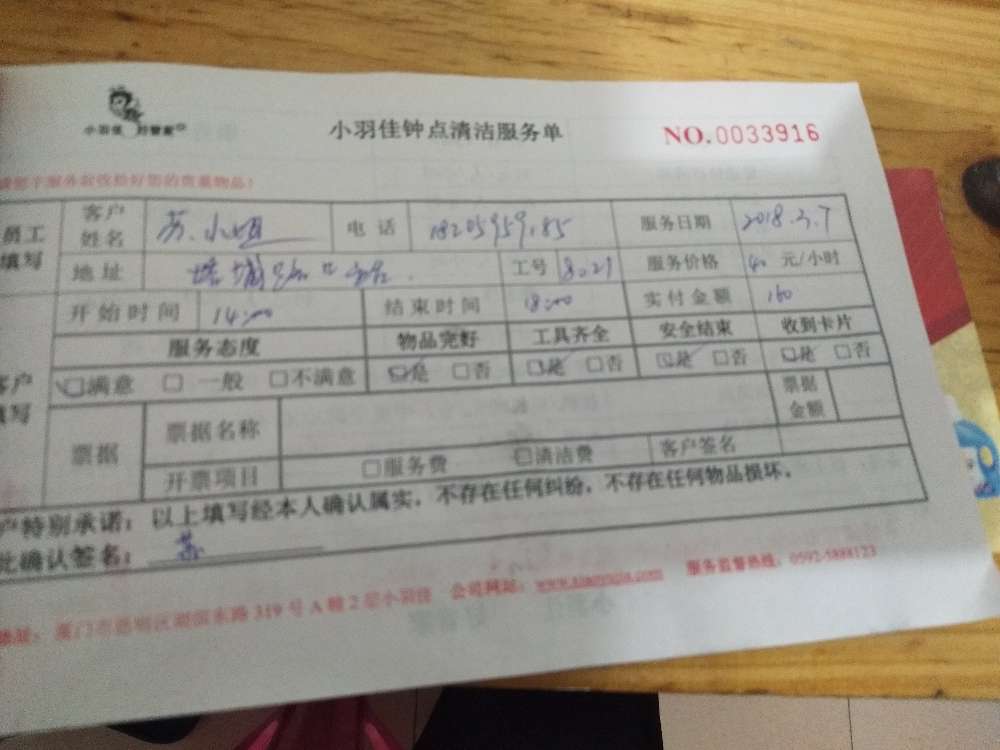 小羽佳 好管家
小羽佳钟点清洁服务单
NO.0033916
员工 填写 客户姓名 苏小姐 电话 服务日期 2018.3.7
地址 工号 服务价格 40 元/小时
开始时间 14:00 结束时间 18:00 实付金额 160
服务态度 物品完好 工具齐全 安全结束 收到卡片
☑满意 □ 一般 □不满意 ☑是 □否 ☑是 □否 ☑是 □否 ☑是 □否
票据 票据名称 票据金额
开票项目 □服务费 □清洁费 客户签名
户特别承诺：以上填写经本人确认属实，不存在任何纠纷，不存在任何物品损坏。
此确认签名： 苏
厦门市思明区湖滨东路 319 号 A 幢 2 层小羽佳 公司网站： 服务监督热线：0592-5888123